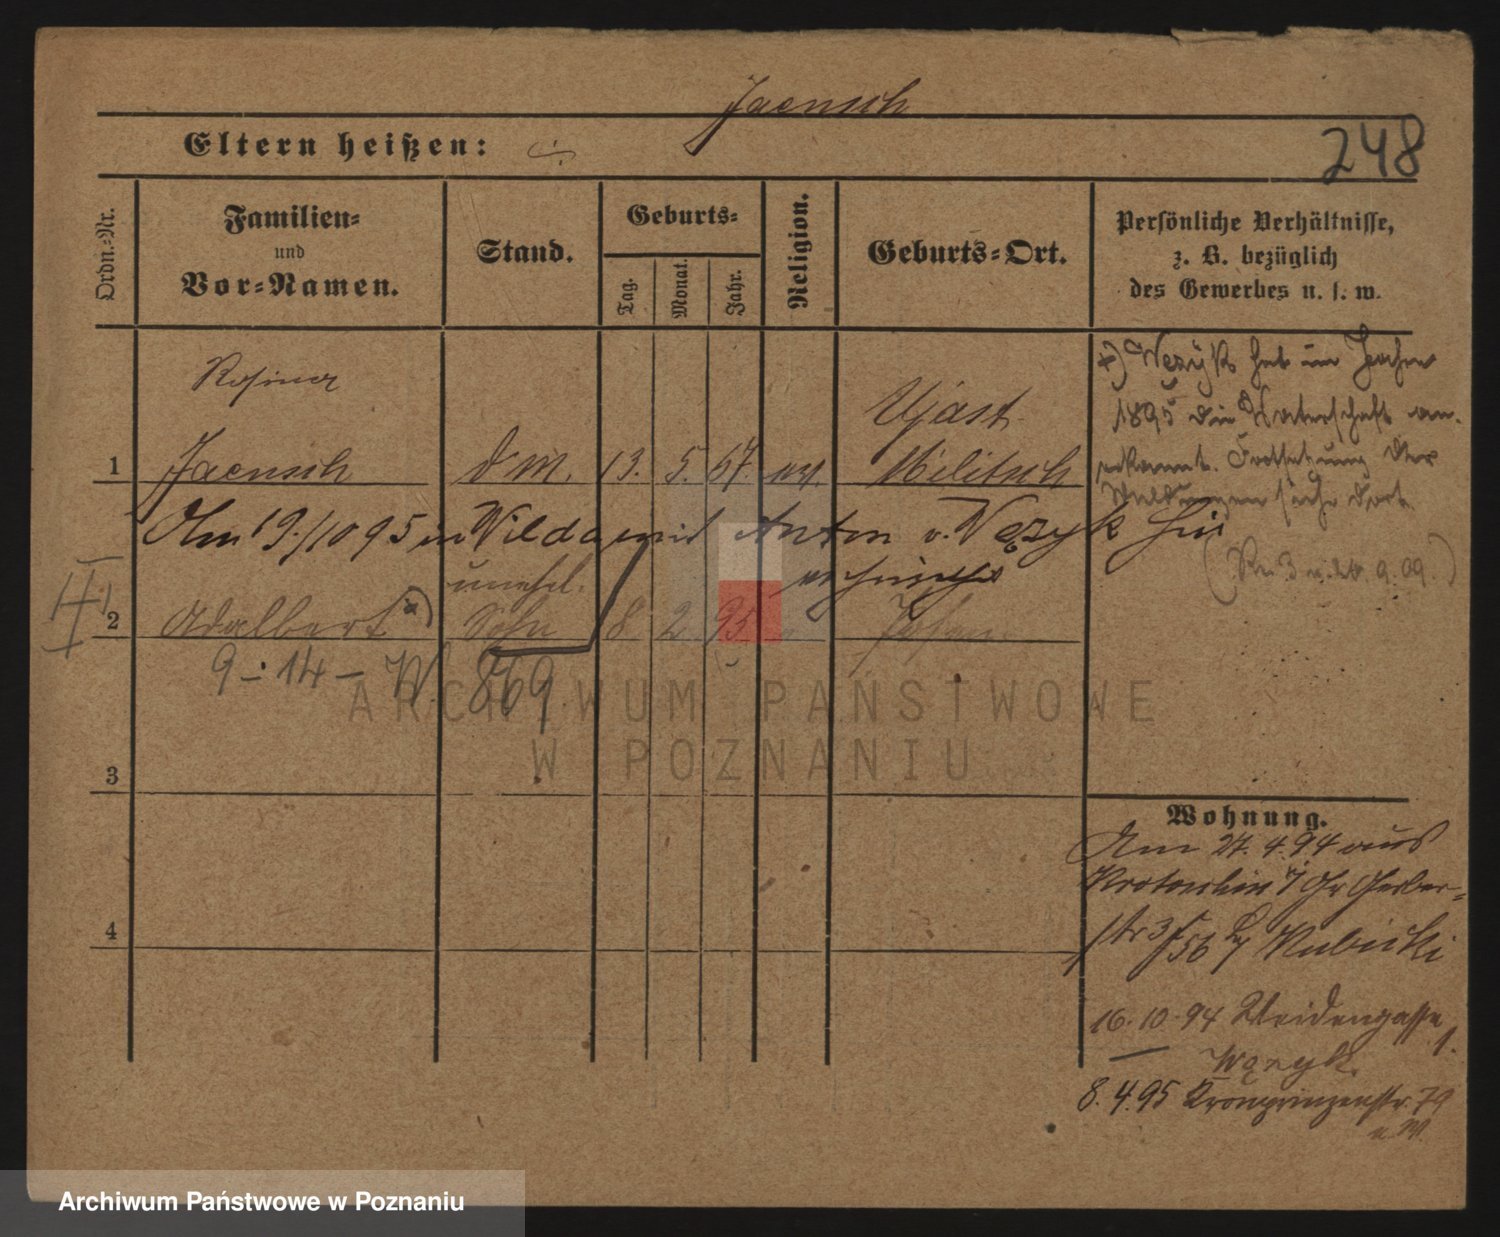 Jaensch
Eltern heißen: ./.
248
Ordn.=Nr.
Familien=
und
Vor=Namen.
Stand.
Geburts=
Tag.
Monat.
Jahr.
Religion.
Geburts=Ort.
Persönliche Verhältnisse,
z. B. bezüglich
des Gewerbes u. s. w.
Rosina
Ujast
1 Jaensch d m. 13. 5. 67. ev. Militsch
Am 19./10 95 in Wilda mit Anton v. Węzyk hier
unehel.
2 Adalbert x) Sohn 8 2 95 Posen
9-14- W. 869.
3
4
x) Węzyk hat im Jahre
1895 die Vaterschaft an-
erkannt. Fortsetzung der
Meldungen siehe dort.
Wohnung.
Am 27. 4. 94 aus
Krotoschin Gr Gerber-
str 3 Kubicki
16. 10. 94 Weidengasse 1.
Węzyk.
8. 4. 95 Kronprinzenstr. 79
ARCHIWUM PAŃSTWOWE
W POZNANIU
Archiwum Państwowe w Poznaniu